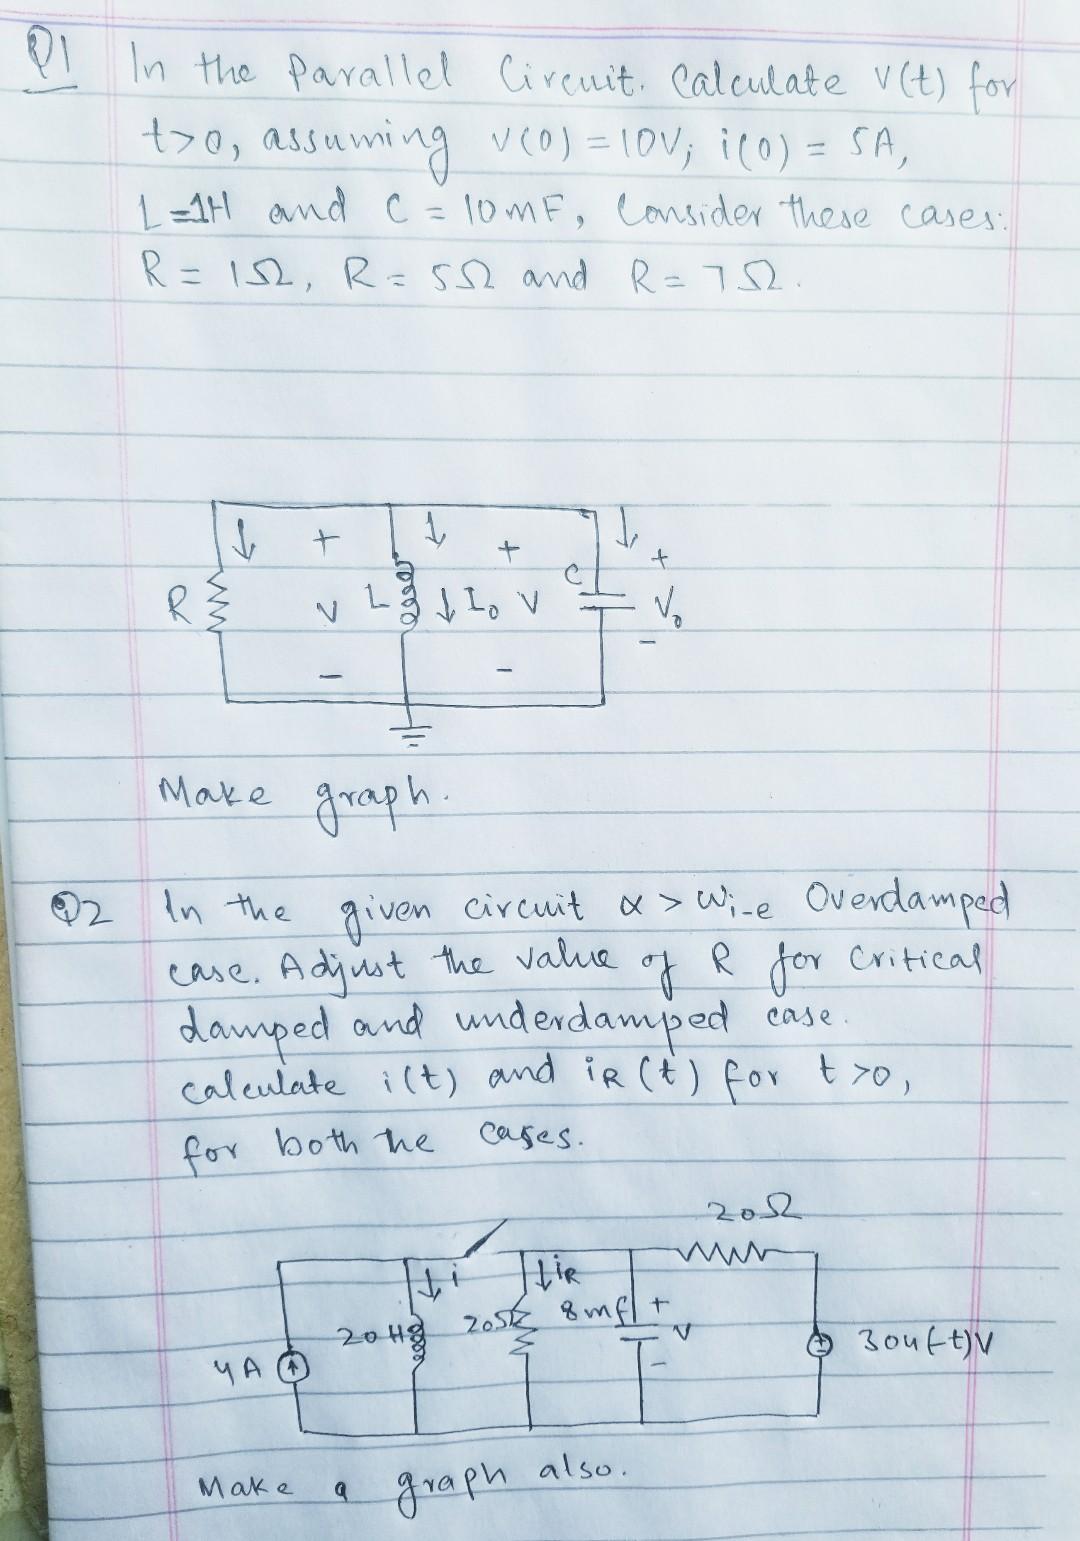 Q1 In the Parallel Circuit. Calculate v(t) for
t>0, assuming v(0) = 10V; i(0) = 5A,
L=1H and C = 10mF, Consider these cases:
R = 1Ω, R = 5Ω and R = 7Ω.
+ +  +
R V L I₀ V C V₀
- - -
Make graph.
Q2 In the given circuit α > Wi-e Overdamped
case. Adjust the value of R for Critical
damped and underdamped case.
calculate i(t) and iR(t) for t>0,
for both the cases.
20Ω
i iR
20H 20Ω 8mf + v -
4A 30u(-t)V
Make a graph also.